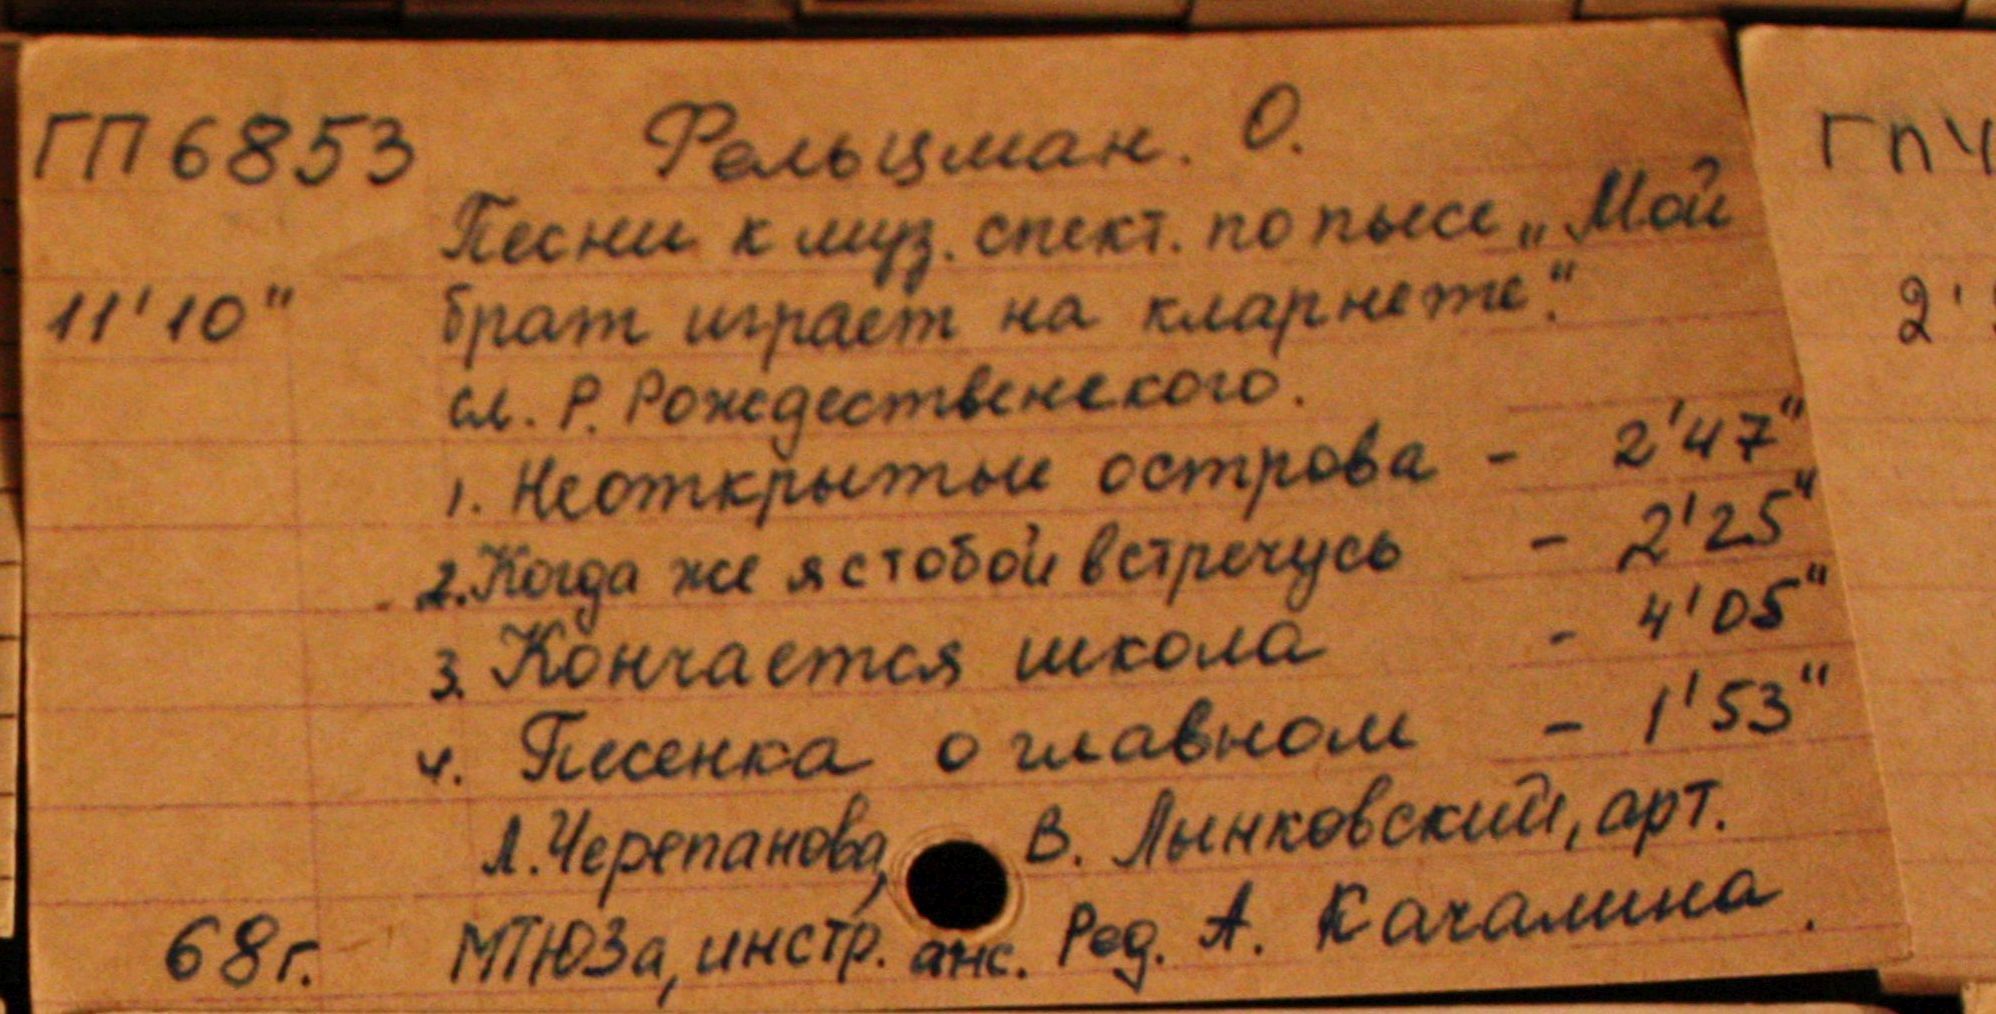 ГП 6853 Фельцман. О.
Песни к муз. спект. по пьесе „Мой
11'10" брат играет на кларнете".
сл. Р. Рождественского.
1. Неоткрытые острова - 2'47"
2. Когда же я с тобой встречусь - 2'25"
3. Кончается школа - 4'05"
4. Песенка о главном - 1'53"
Л. Черепанова, В. Лынковский, арт.
68г. МТЮЗа, инстр. анс. Ред. А. Качалина.
ГП Ч
2'